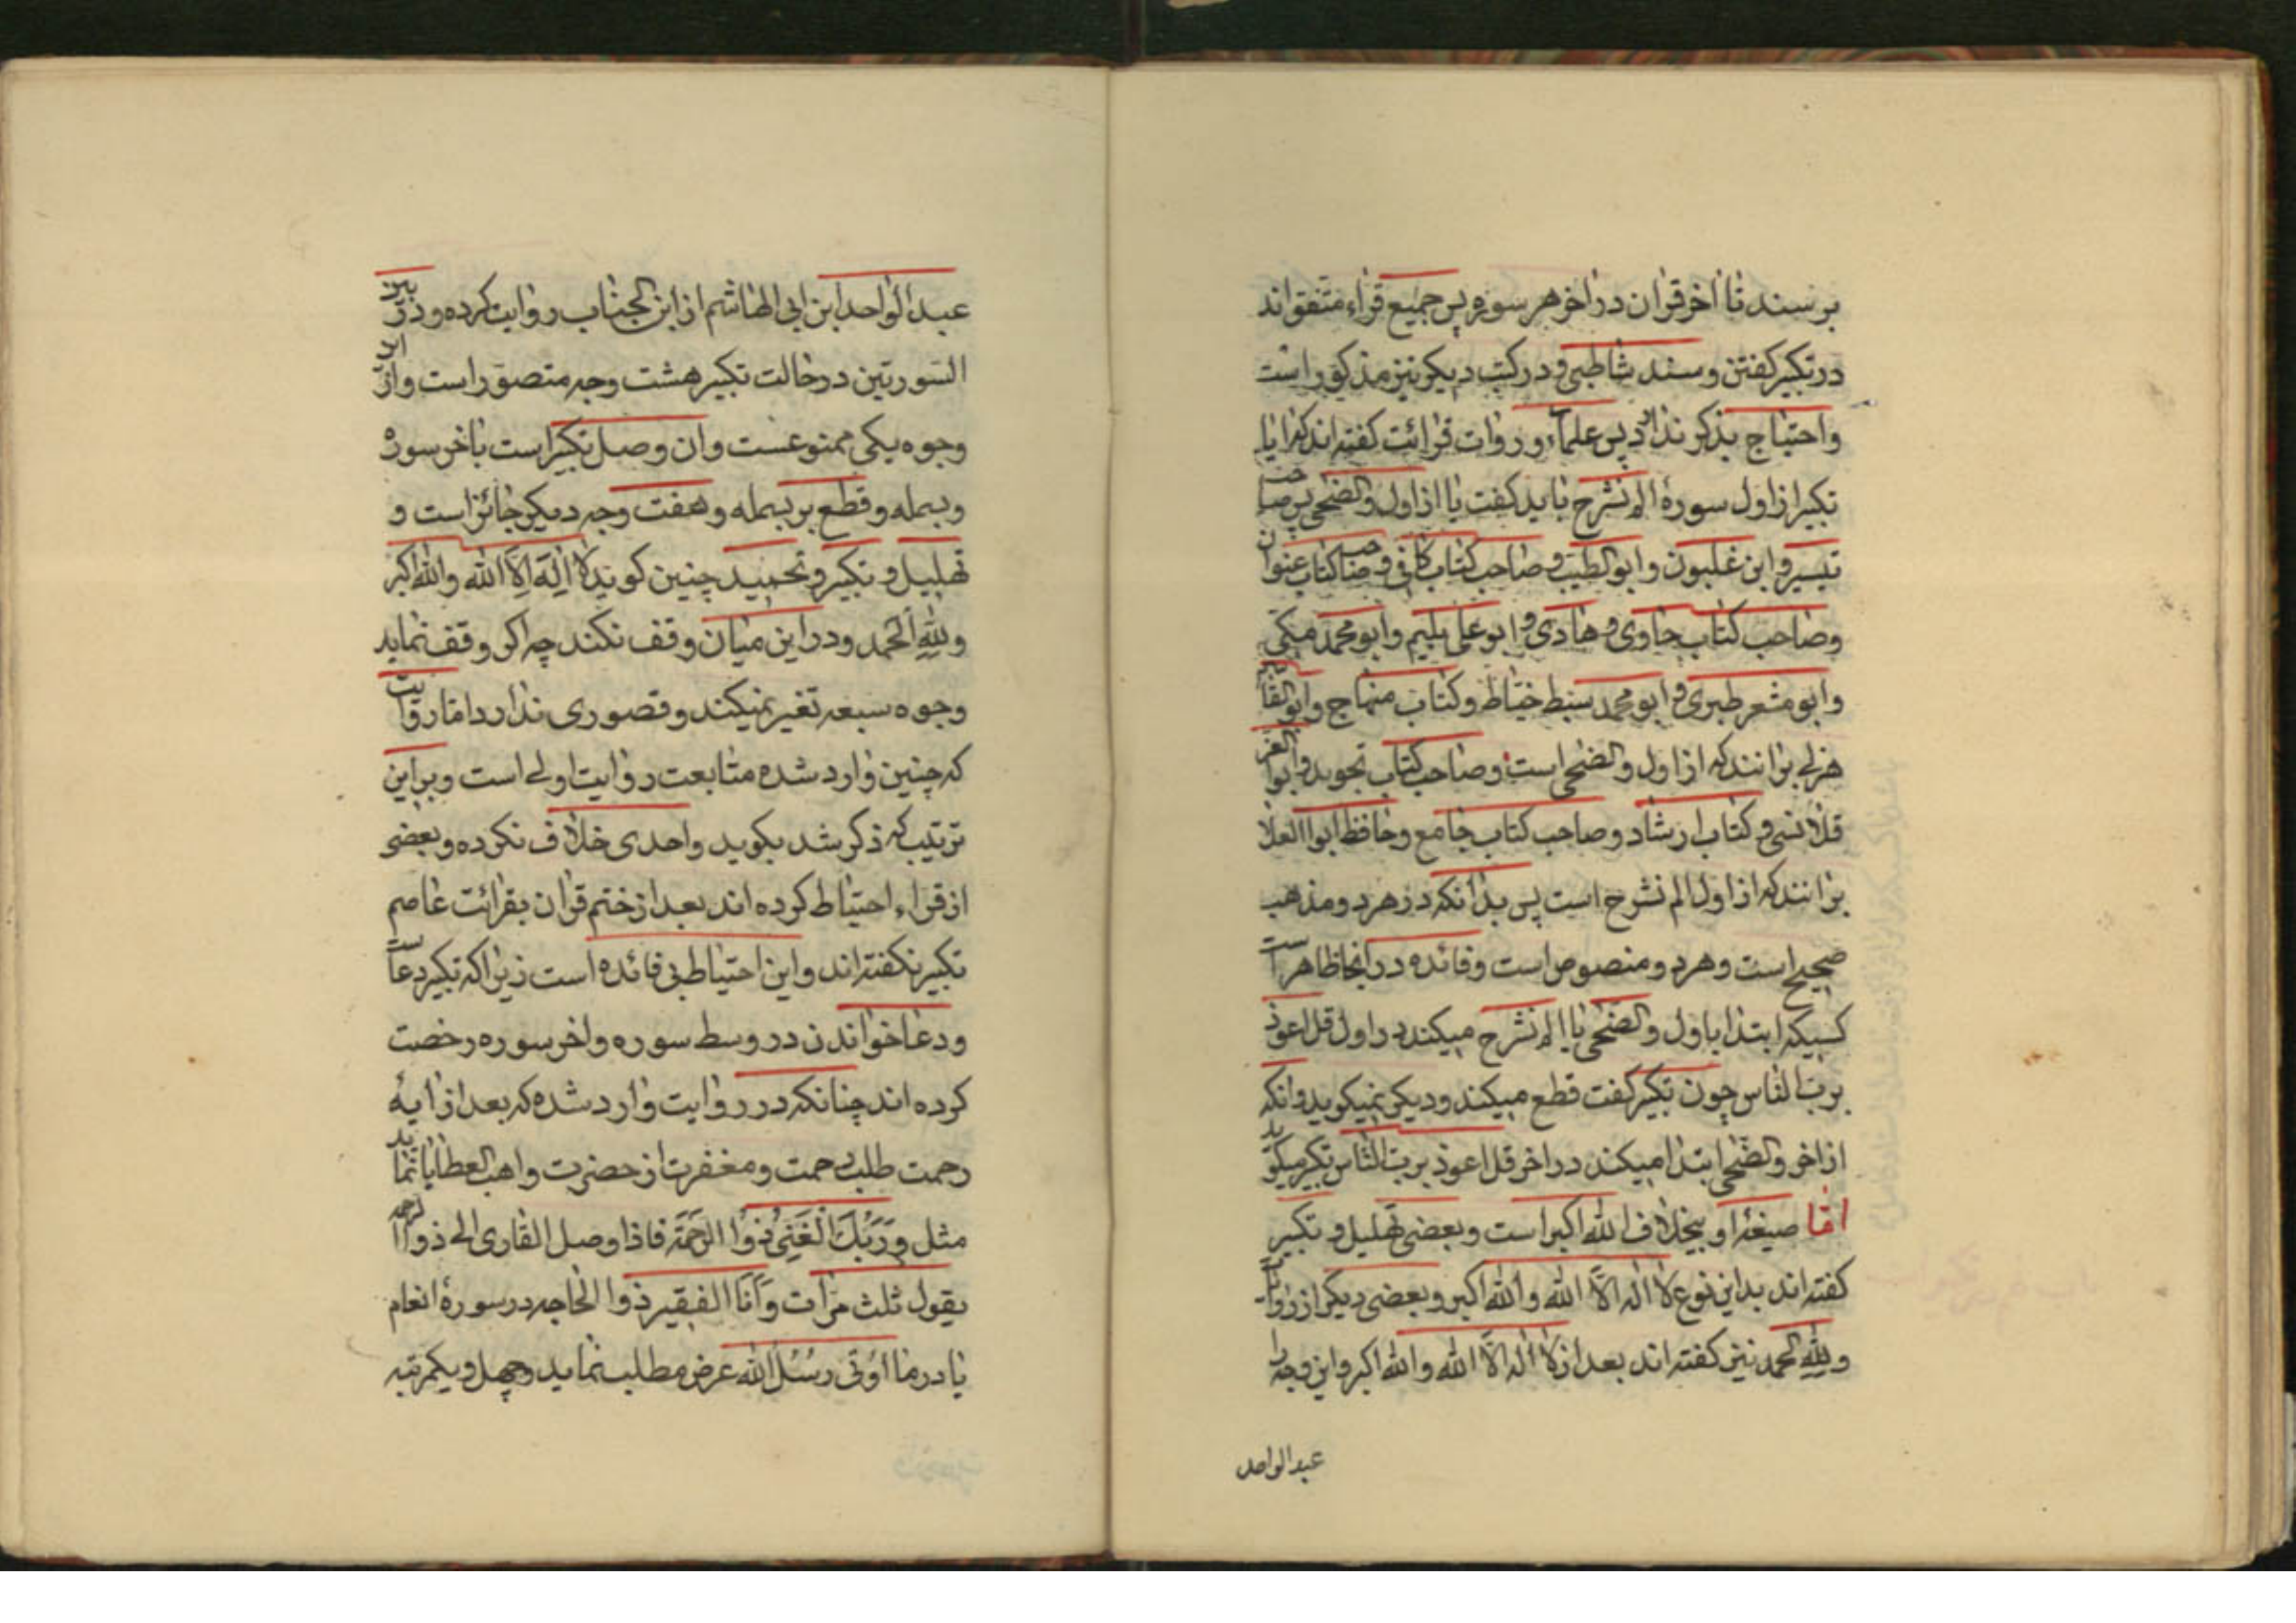 برسند تا اخر قران در اخر هر سوره پس جمیع قراء متفق‌اند
در تکبیر کفتن و سند شاطبی و در کتب دیکر نیز مذکور است
واحتیاج بذکر ندارد پس علماء و روات قرائت کفته‌اند که ایا
تکبیر از اول سورهٔ الم نشرح باید کفت یا از اول والضحی پس صاحب
تیسیر و ابن غلبون و ابو الطیب و صاحب کتاب کافی و صاحب کتاب عنوان
وصاحب کتاب حاوی و هادی و ابو علی بلیم وابو محمد مکی
وابو مشعر طبری و ابو محمد سبط خیاط و کتاب منهاج وابو القاسم
هزلی برانند که از اول والضحی است وصاحب کتاب تجوید وابوا العز
قلانسی و کتاب ارشاد و صاحب کتاب جامع وحافظ ابوا العلا
برانند که از اول الم نشرح است پس بدانکه در هر دو مذهب
صحیح است و هر دو منصوص است و فائده در اینجا ظاهر است
کسیکه ابتدا باول والضحی یا الم نشرح میکند در اول قل اعوذ
برب الناس چون تکبیر کفت قطع میکند و دیکر نمیکوید و انکه
از اخر والضحی ابتدا میکند در اخر قل اعوذ برب الناس تکبیر میکوید
اما صیغهٔ او بیخلاف الله اکبر است و بعضی تهلیل و تکبیر
کفته‌اند بداین نوع لا اله الا الله والله اکبر و بعضی دیکر از روات
ولله الحمد نیز کفته‌اند بعد از لا اله الا الله والله اکبر و این وجه را
عبد الواحد
عبد الواحد ابن ابی الهاشم از ابن الحباب روایت کرده و در بین
السورتین در حالت تکبیر هشت وجه متصور است و از این
وجوه یکی ممنوعست وان وصل تکبیر است باخر سوره
وبسمله وقطع بر بسمله و هفت وجه دیکر جائز است و
تهلیل و تکبیر و تحمید چنین کوید لا اِلٰهَ اِلاَّ الله والله اکبر
ولِلّٰهِ الحمد و در این میان وقف نکند چه اکر وقف نماید
وجوه سبعه تغیر نمیکند و قصوری ندارد اما روایت
که چنین وارد شده متابعت روایت اولی است و براین
ترتیب که ذکر شد بکوید واحدی خلاف نکرده و بعضی
از قراء احتیاط کرده‌اند بعد از ختم قران بقرائت عاصم
تکبیر نکفته‌اند و این احتیاط بی فائده است زیرا که تکبیر دعاست
ودعا خواندن در وسط سوره و اخر سوره رخصت
کرده‌اند چنانکه در روایت وارد شده که بعد از ایهٔ
رحمت طلب رحمت و مغفرت از حضرت واهب العطایا نماید
مثل وَرَبُّكَ الْغَنِیُّ ذُوا الرَّحْمَةِ فاذا وصل القاری الی ذوا الرحمه
یقول ثلث مرّات وَاَنَا الفقیر ذوا الحاجه در سورهٔ انعام
یا در ما اُوتی رُسُل الله عرض مطلب نماید و چهل و یکمرتبه